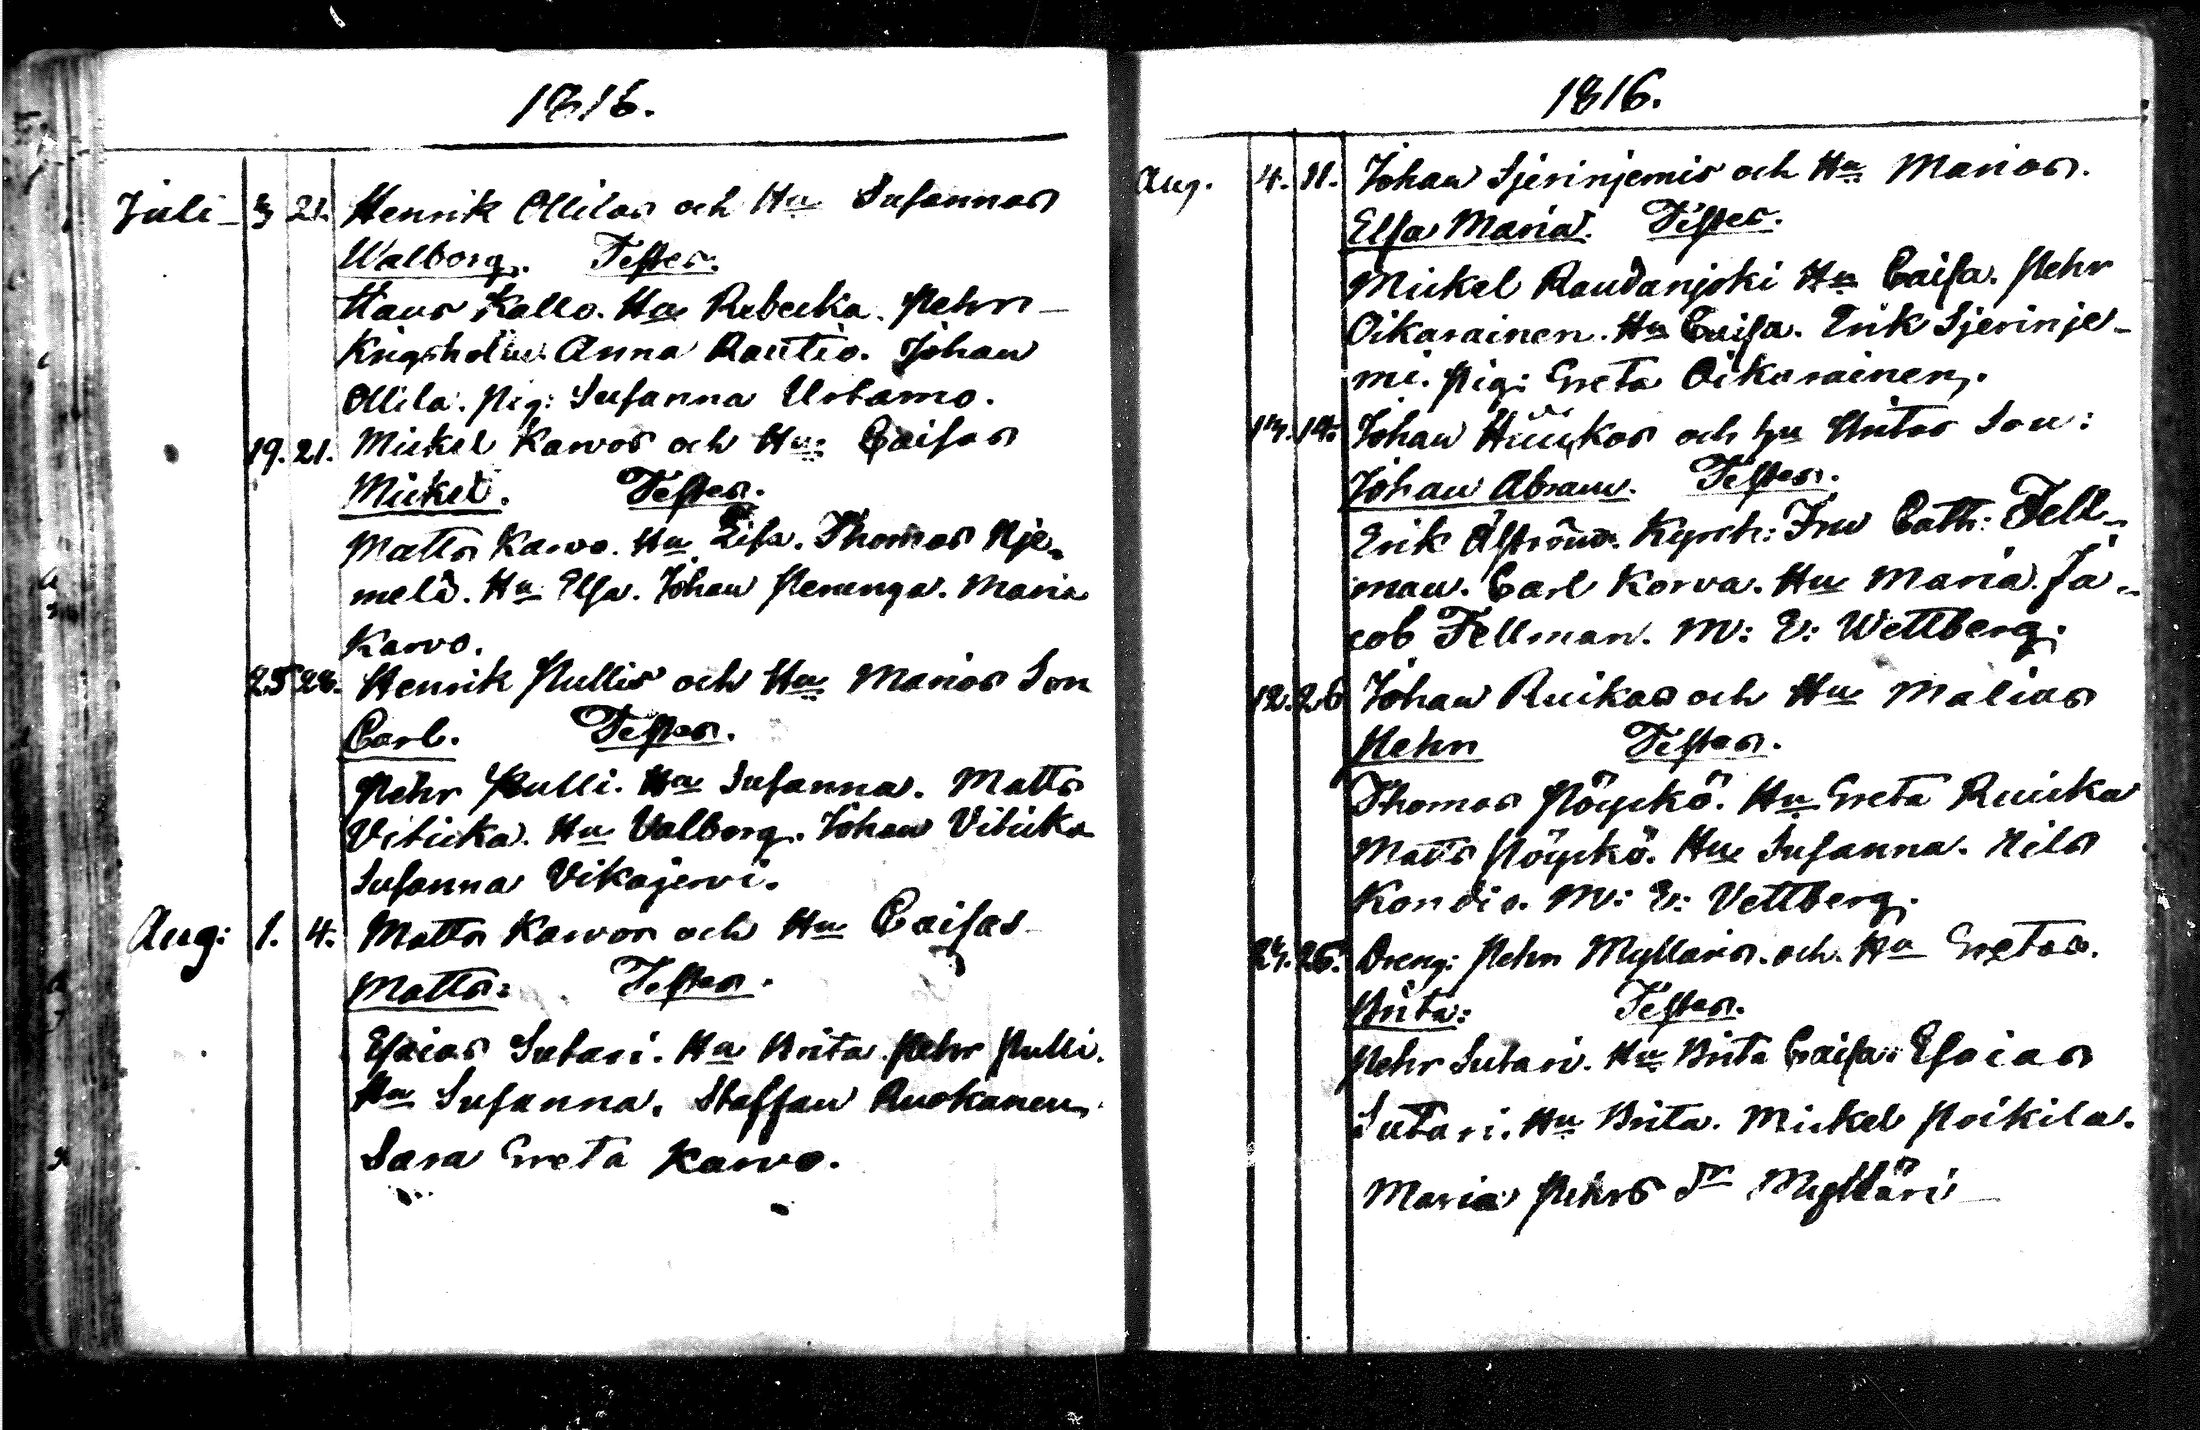 1816.
Juli – 3 21. Henrik Ollilas och Hu Susannas
Walborg. Testes.
Hans Kallo. Hu Rebecka. Pehr
Krigsholm. Anna Rautio. Johan
Ollila. Pig: Susanna Urtamo.
19. 21. Mickel Karvos och Hu: Caisas
Mickel. Testes.
Matts Karvo. Hu Lisa. Thomas Nje-
melä. Hu Elsa. Johan Perunga. Maria
Karvo.
25 28. Henrik Pullis och Hu Marias Son
Carl. Testes.
Pehr Pulli. Hu Susanna. Matts
Viticka. Hu Valborg. Johan Viticka
Susanna Vikajervi.
Aug: 1. 4. Matts Karvos och Hu Caisas
Matts: Testes.
Esaias Sutari. Hu Brita. Pehr Pulli.
Hu Susanna. Staffan Ruokanen.
Sara Greta Karvo.
1816.
Aug. 4. 11. Johan Sjerinjemis och Hu Marias.
Elsa Maria. Testes.
Mickel Raudanjoki Hu Caisa. Pehr
Oikarainen. Hu Caisa. Erik Sjerinje-
mi. Pig: Greta Oikarainen.
Johan och hu Britas Son:
Johan Abram. Testes.
Erik Kyrch: Fru Cath: Fell-
man. Carl Korva. Hu Maria. Ja-
cob Fellman. M: E: Wettberg.
12. 26 Johan Ruikas och Hu Malias
Pehr Testes.
Thomas Pöyckö. Hu Greta Ruicka
Matts Pöyckö. Hu Susanna. Nils
Kordis. M: E: Vettberg.
24. 26. Dreng: Pehr Myllaris. och. Hu Gretas.
Brita: Testes.
Pehr Sutari. Hu Brita Caisa. Esaias
Sutari. Hu Brita. Mickel Poikila.
Maria Pehrs Dr Mylläri